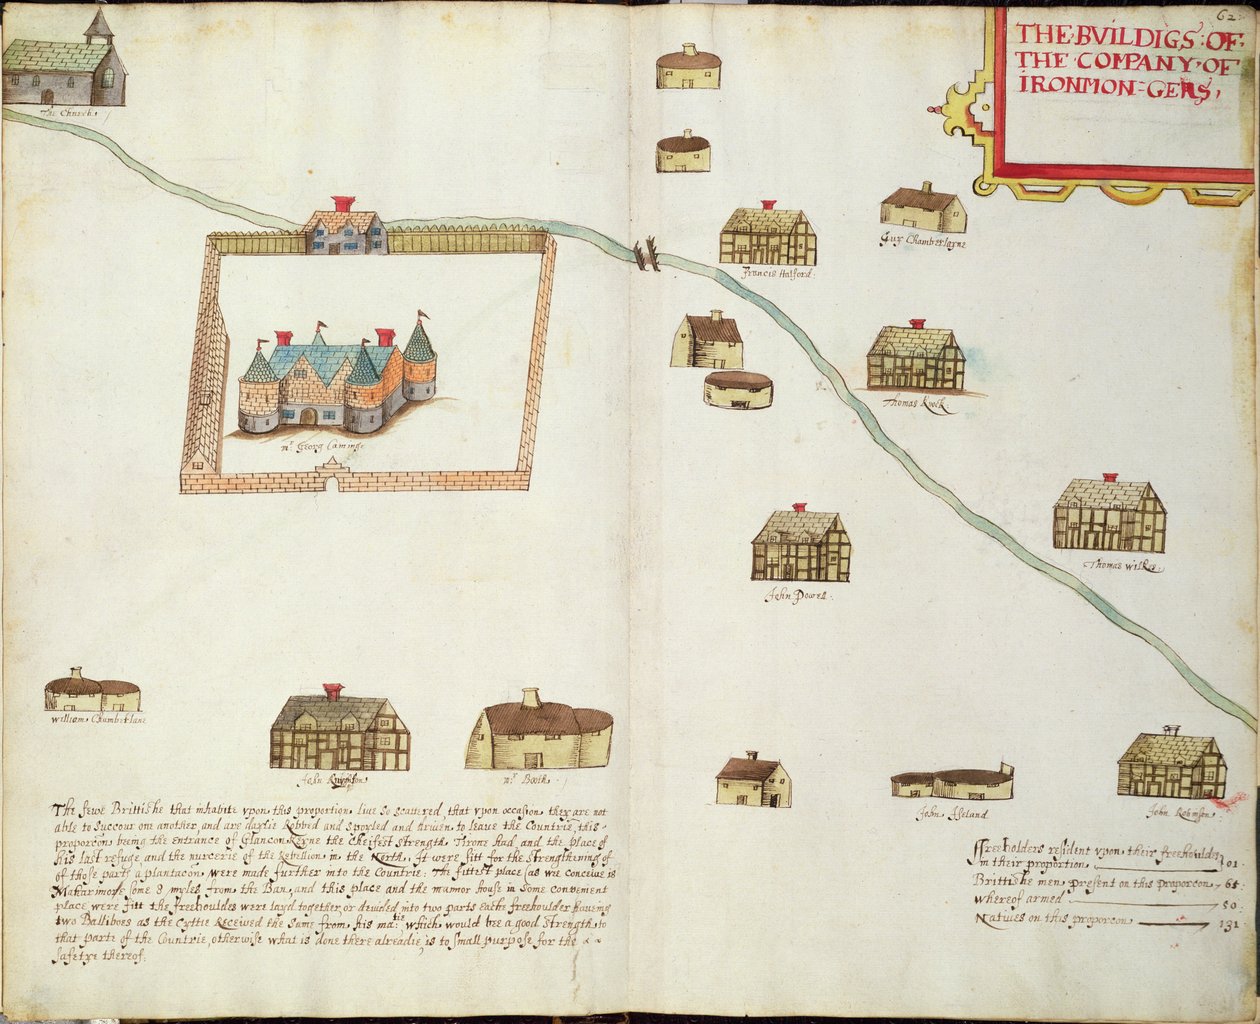 62
THE·BVILDIGS·OF·
THE·COMPANY·OF
IRONMON=GERS,
The Church
Guy Chamberlayne
Francis Halford
Thomas
mr. Georg Caminge
Thomas wilkes
John Powell
william Chamberlane
John
mr. Booth
John
John Robinson
The fewe Brittishe that inhabite vpon this proportion liue so scattered, that vpon occasion they are not
able to succour one another, and are daylie Robbed and Spoyled and driuen to leaue the Countrie, this
proporcon being the entrance of Glancon Keyne the cheifest strength Tirone had, and the place of
his last refuge, and the nurcerie of the Rebellion in the North. It were fitt for the strengthening of
of those parts a plantacon were made further into the Countrie: The fittest place (as we conceiue is
some 8 myles from the Ban, and this place and the mannor house in some convenient
place were fitt the freehoulders were layd together, or deuided into two parts eache freehoulder haueing
two Balliboes as the Cyttie Received the same from his matie which would bee a good strength to
that parte of the Countrie, otherwise what is done there alreadie is to small purpose for the
safetye thereof.
Freeholders resident vpon their freehoulds
in their proportion 01.
Brittishe men present on this proporcon
whereof armed 50.
Natiues on this proporcon 131